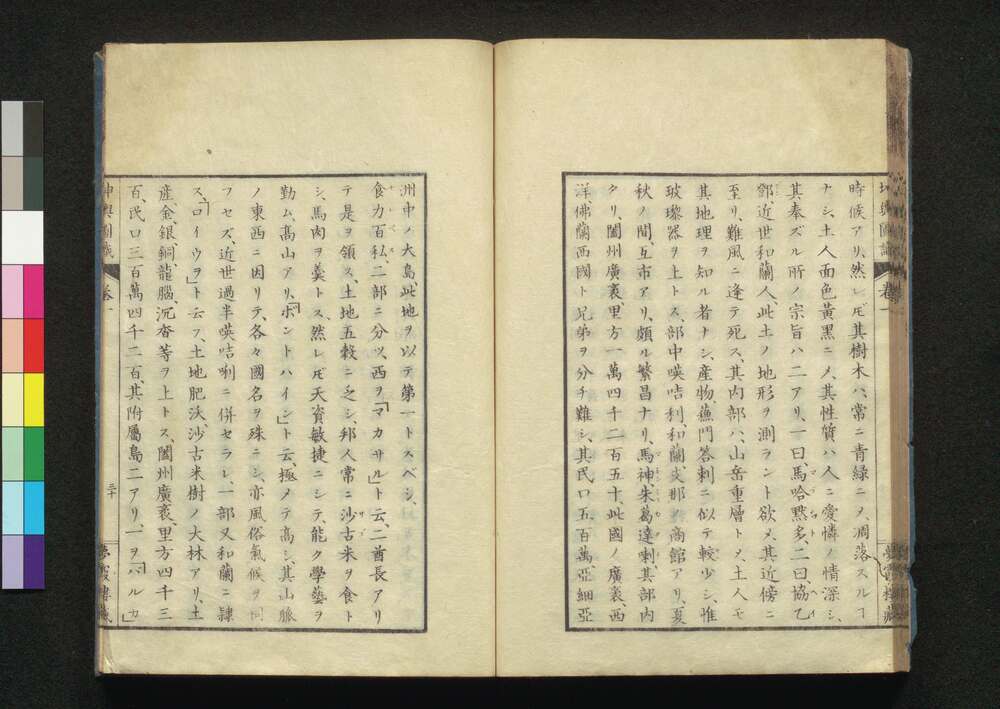 時候アリ、然レ𪜈其樹木ハ、常ニ青緑ニ〆凋落スルヿ
ナシ、土人面色黄黒ニ〆、其性質ハ人ニ愛憐ノ情深シ、
其奉ズル所ノ宗旨ハ二アリ、一曰、馬哈黙多、二曰、協乙
鄧、近世和蘭人、此土ノ地形ヲ測ラント欲〆、其近傍ニ
至リ、難風ニ逢テ死ス、其内部ハ、山岳重層ト〆、土人モ
其地理ヲ知ル者ナシ、産物、蕉門答剌ニ似テ較少シ、惟
玻璨器ヲ上トス、部中𠸄咭利、和蘭、支那ノ商館アリ、夏
秋ノ間、互市アリ、頗ル繁昌ナリ、馬神、朱葛達喇其部内
タリ、闔州廣袤、里方一萬四千二百五十、此國ノ廣袤、西
洋、佛蘭西國ト兄弟ヲ分チ難シ、其民口五百萬、亞細亞
洲中ノ大島、此地ヲ以テ第一トスベシ、
食力百私、二部ニ分ツ、西ヲ「マカサル」ト云、二酋長アリ
テ是ヲ領ス、土地五穀ニ乏シ、邦人常ニ沙古米ヲ食ト
シ、馬肉ヲ羹トス、然レ𪜈天資敏捷ニシテ、能ク學藝ヲ
勤ム、髙山アリ、「ボントハイン」ト云、極メテ高シ、其山脈
ノ東西ニ因リテ、各々國名ヲ殊ニシ、亦風俗氣候ヲ同
フセズ、近世過半𠸄咭唎ニ併セラレ、一部又和蘭ニ隷
ス、「ロイウヲ」ト云フ、土地肥沃、沙古米樹ノ大林アリ、土
産、金、銀、銅、龍腦、沉香等ヲ上トス、闔州廣袤、里方四千三
百、民口三百萬四千二百、其附屬島二アリ、一ヲ「ハルカ
坤輿圖識
卷一
三十
夢霞樓藏